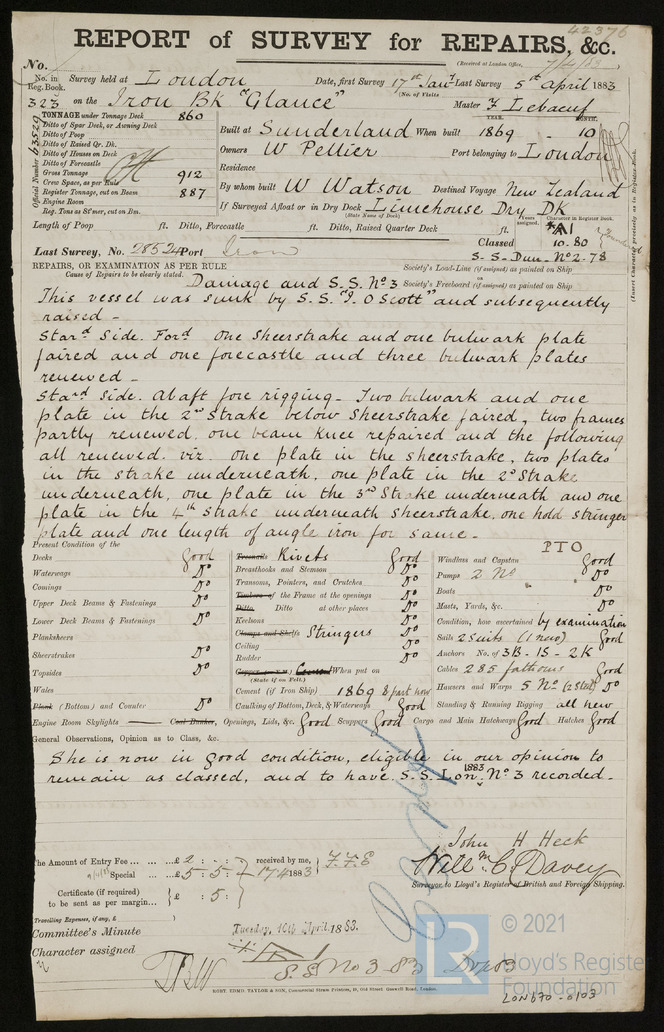 42376
REPORT of SURVEY for REPAIRS, &c.
No.
(Received at London Office, 7/4/83)
No. in Reg. Book. Survey held at London Date, first Survey 17th Jany Last Survey 5th April 1883
(No. of Visits)
323 on the Iron Bk "Glance" Master F Lebaeuf
TONNAGE under Tonnage Deck 860
Ditto of Spar Deck, or Awning Deck
Ditto of Poop
Ditto of Raised Qr. Dk.
Ditto of Houses on Deck
Ditto of Forecastle
Gross Tonnage 912
Crew Space, as per Rule
Register Tonnage, cut on Beam 887
Engine Room
Reg. Tons as St'mer, cut on Bm.
Official Number 63529
YEAR. MONTH.
Built at Sunderland When built 1869 - 10
Owners W Pellier Port belonging to London
Residence
By whom built W Watson Destined Voyage New Zealand
If Surveyed Afloat or in Dry Dock Limehouse Dry Dk
(State Name of Dock)
Years assigned. Character in Register Book.
Length of Poop ft. Ditto, Forecastle ft. Ditto, Raised Quarter Deck ft.
A1
Classed 10.80
S.S. Dun. No 2-78
(Insert Character precisely as in Register Book.
Last Survey, No. 28524 Port Iron
REPAIRS, OR EXAMINATION AS PER RULE
Cause of Repairs to be clearly stated.
Society's Load-Line (if assigned) as painted on Ship
Society's Freeboard (if assigned) as painted on Ship
Damage and S.S. No 3
This vessel was sunk by S.S. "J. O Scott" and subsequently
raised -
Stard Side. Ford one sheerstrake and one bulwark plate
faired and one forecastle and three bulwark plates
renewed -
Stard side. Abaft fore rigging - Two bulwark and one
plate in the 2nd strake below sheerstrake faired, two frames
partly renewed. one beam knee repaired and the following
all renewed. viz. one plate in the sheerstrake, two plates
in the strake underneath, one plate in the 2d Strake
underneath, one plate in the 3rd Strake underneath and one
plate in the 4th Strake underneath sheerstrake. one hold stringer
plate and one length of angle iron for same -
PTO
Present Condition of the
Decks Good
Waterways Do
Comings Do
Upper Deck Beams & Fastenings Do
Lower Deck Beams & Fastenings Do
Planksheers
Sheerstrakes Do
Topsides Do
Wales
Plank (Bottom) and Counter Do
Engine Room Skylights —— Coal Bunker, Openings, Lids, &c. Good Scuppers Good Cargo and Main Hatchways Good Hatches Good
Treenails Rivets Good
Breasthooks and Stemson Do
Transoms, Pointers, and Crutches Do
Timbers of the Frame at the openings Do
Ditto Ditto at other places Do
Keelsons Do
Clamps and Shelfs Stringers Do
Ceiling Do
Rudder Do
Copper (or Y.M.) Cement When put on
(State if on Felt.)
Cement (if Iron Ship) 1869 & part now
Caulking of Bottom, Deck, & Waterways Good
Windlass and Capstan Good
Pumps 2 No Do
Boats Do
Masts, Yards, &c. Do
Condition, how ascertained by examination
Sails 2 suits (1 new) Good
Anchors No. of 3B-1S-2K
Cables 285 fathoms Good
Hawsers and Warps 5 No (2 Steel) Do
Standing & Running Rigging all new
General Observations, Opinion as to Class, &c.
She is now in good condition, eligible in our opinion to
remain as classed, and to have S.S. Lon. 1883 No 3 recorded.
John H Heck
Willm C Davey
Surveyor to Lloyd's Register of British and Foreign Shipping.
The Amount of Entry Fee ... £ 2 : - : received by me,
Special ... £ 5 : 5 : 17 4 1883
Certificate (if required) to be sent as per margin... £ : 5 :
Travelling Expenses, if any, £
Committee's Minute Tuesday, 10th April, 1883.
Character assigned
S.S. No 3 83
ROBT. EDMD. TAYLOR & SON, Commercial Steam Printers, 19, Old Street, Goswell Road, London.
LR
© 2021
Lloyd's Register
Foundation
LON670-0103